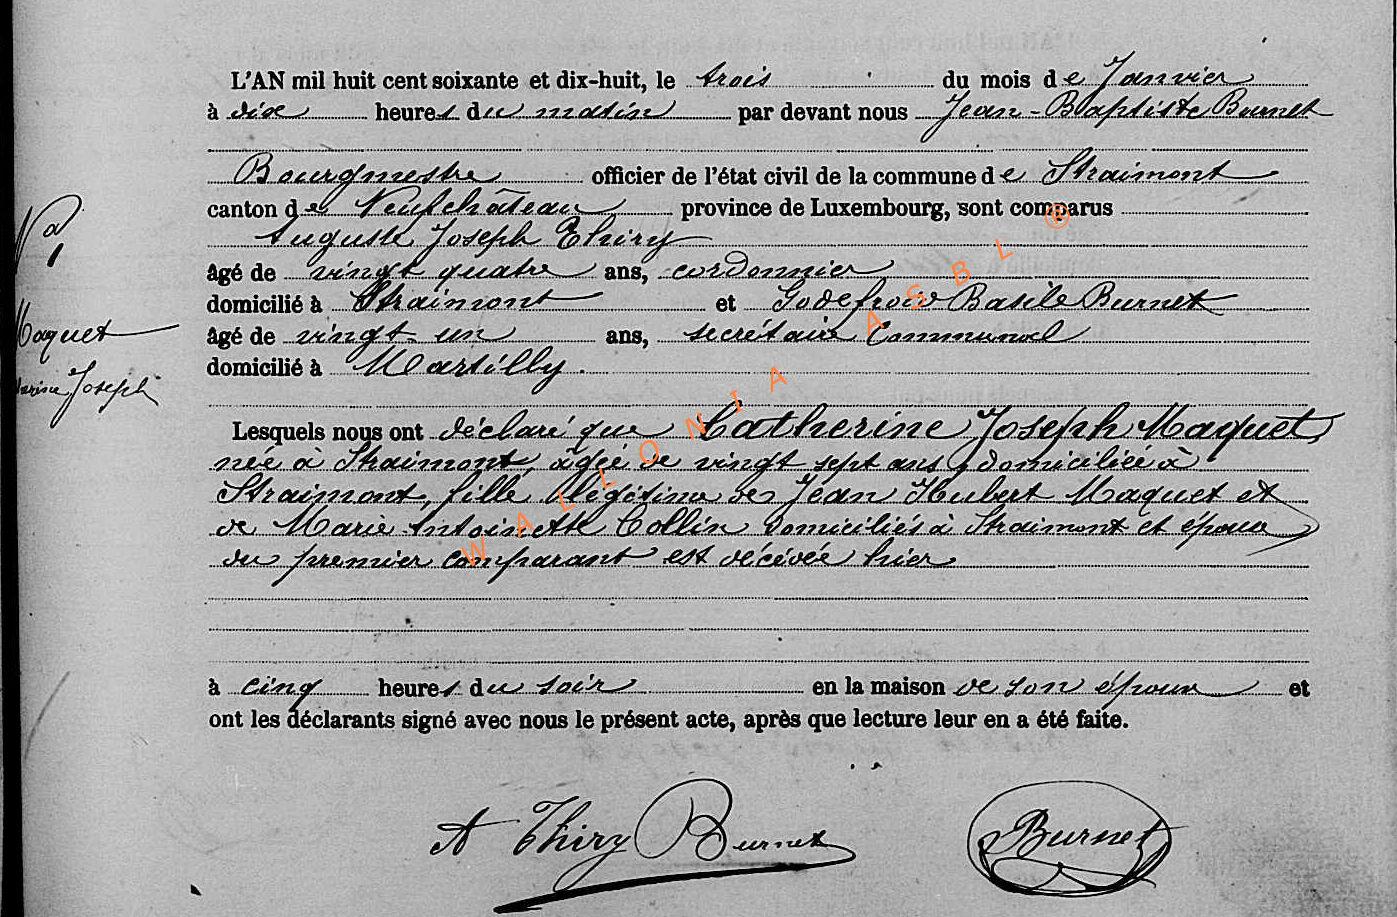 L'AN mil huit cent soixante et dix-huit, le trois du mois de Janvier
à dix heures du matin par devant nous Jean-Baptiste Burnet
Bourgmestre officier de l'état civil de la commune de Straimont
canton de Neufchâteau province de Luxembourg, sont comparus
Auguste Joseph Thiry
âgé de vingt quatre ans, cordonnier
domicilié à Straimont et Godefroid Basile Burnet
âgé de vingt-un ans, secrétaire Communal
domicilié à Martilly.
Nº 1
Maquet
Joseph
Lesquels nous ont déclaré que Catherine Joseph Maquet,
née à Straimont, âgée de vingt sept ans, domiciliée à
Straimont, fille légitime de Jean Hubert Maquet et
de Marie-Antoinette Collin domiciliés à Straimont et épouse
du premier comparant est décédée hier
à cinq heures du soir en la maison de son époux et
ont les déclarants signé avec nous le présent acte, après que lecture leur en a été faite.
A Thiry Burnet Burnet
WALLONIA ASBL ©